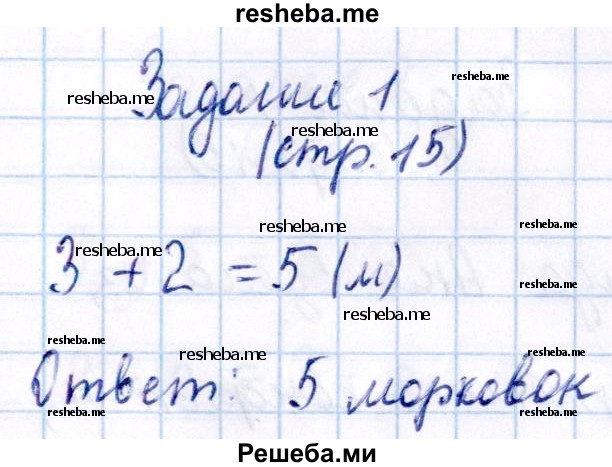 resheba.me
Задание 1
resheba.me
resheba.me
(стр. 15)
resheba.me
resheba.me
resheba.me
resheba.me
3 + 2 = 5 (м)
resheba.me
resheba.me
resheba.me
resheba.me
resheba.me
Ответ: 5 морковок
resheba.me
resheba.me
resheba.me
Решеба.ми